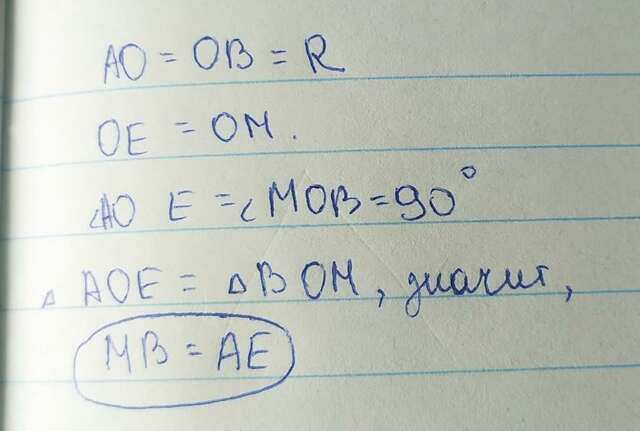 AO = OB = R
OE = OM.
∠AO E = ∠MOB = 90°
△ AOE = △BOM, значит,
MB = AE